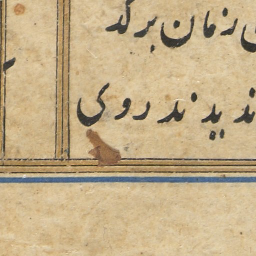 زمان برکد
ندیدند روی